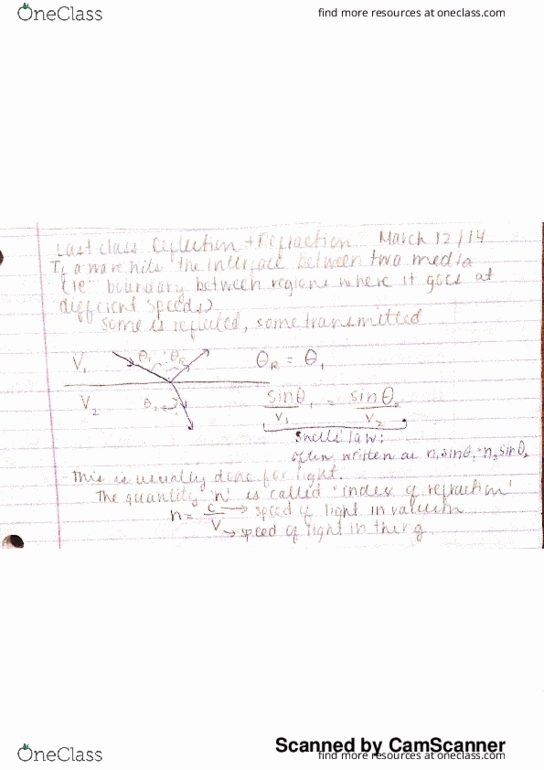 OneClass
find more resources at oneclass.com
Last class Reflection + Refraction March 12/14
If a wave hits the interface between two media
(ie boundary between regions where it goes at
different speeds)
some is reflected, some transmitted
V₁ θ₁ θR θR = θ₁
V₂ θ₂ sinθ₁/V₁ = sinθ₂/V₂
Snells law:
often written as n₁sinθ₁=n₂sinθ₂
- This is usually done for light.
The quantity 'n' is called 'index of refraction'
n = c/V → speed of light in vacuum
→ speed of light in thing
Scanned by CamScanner
OneClass
find more resources at oneclass.com